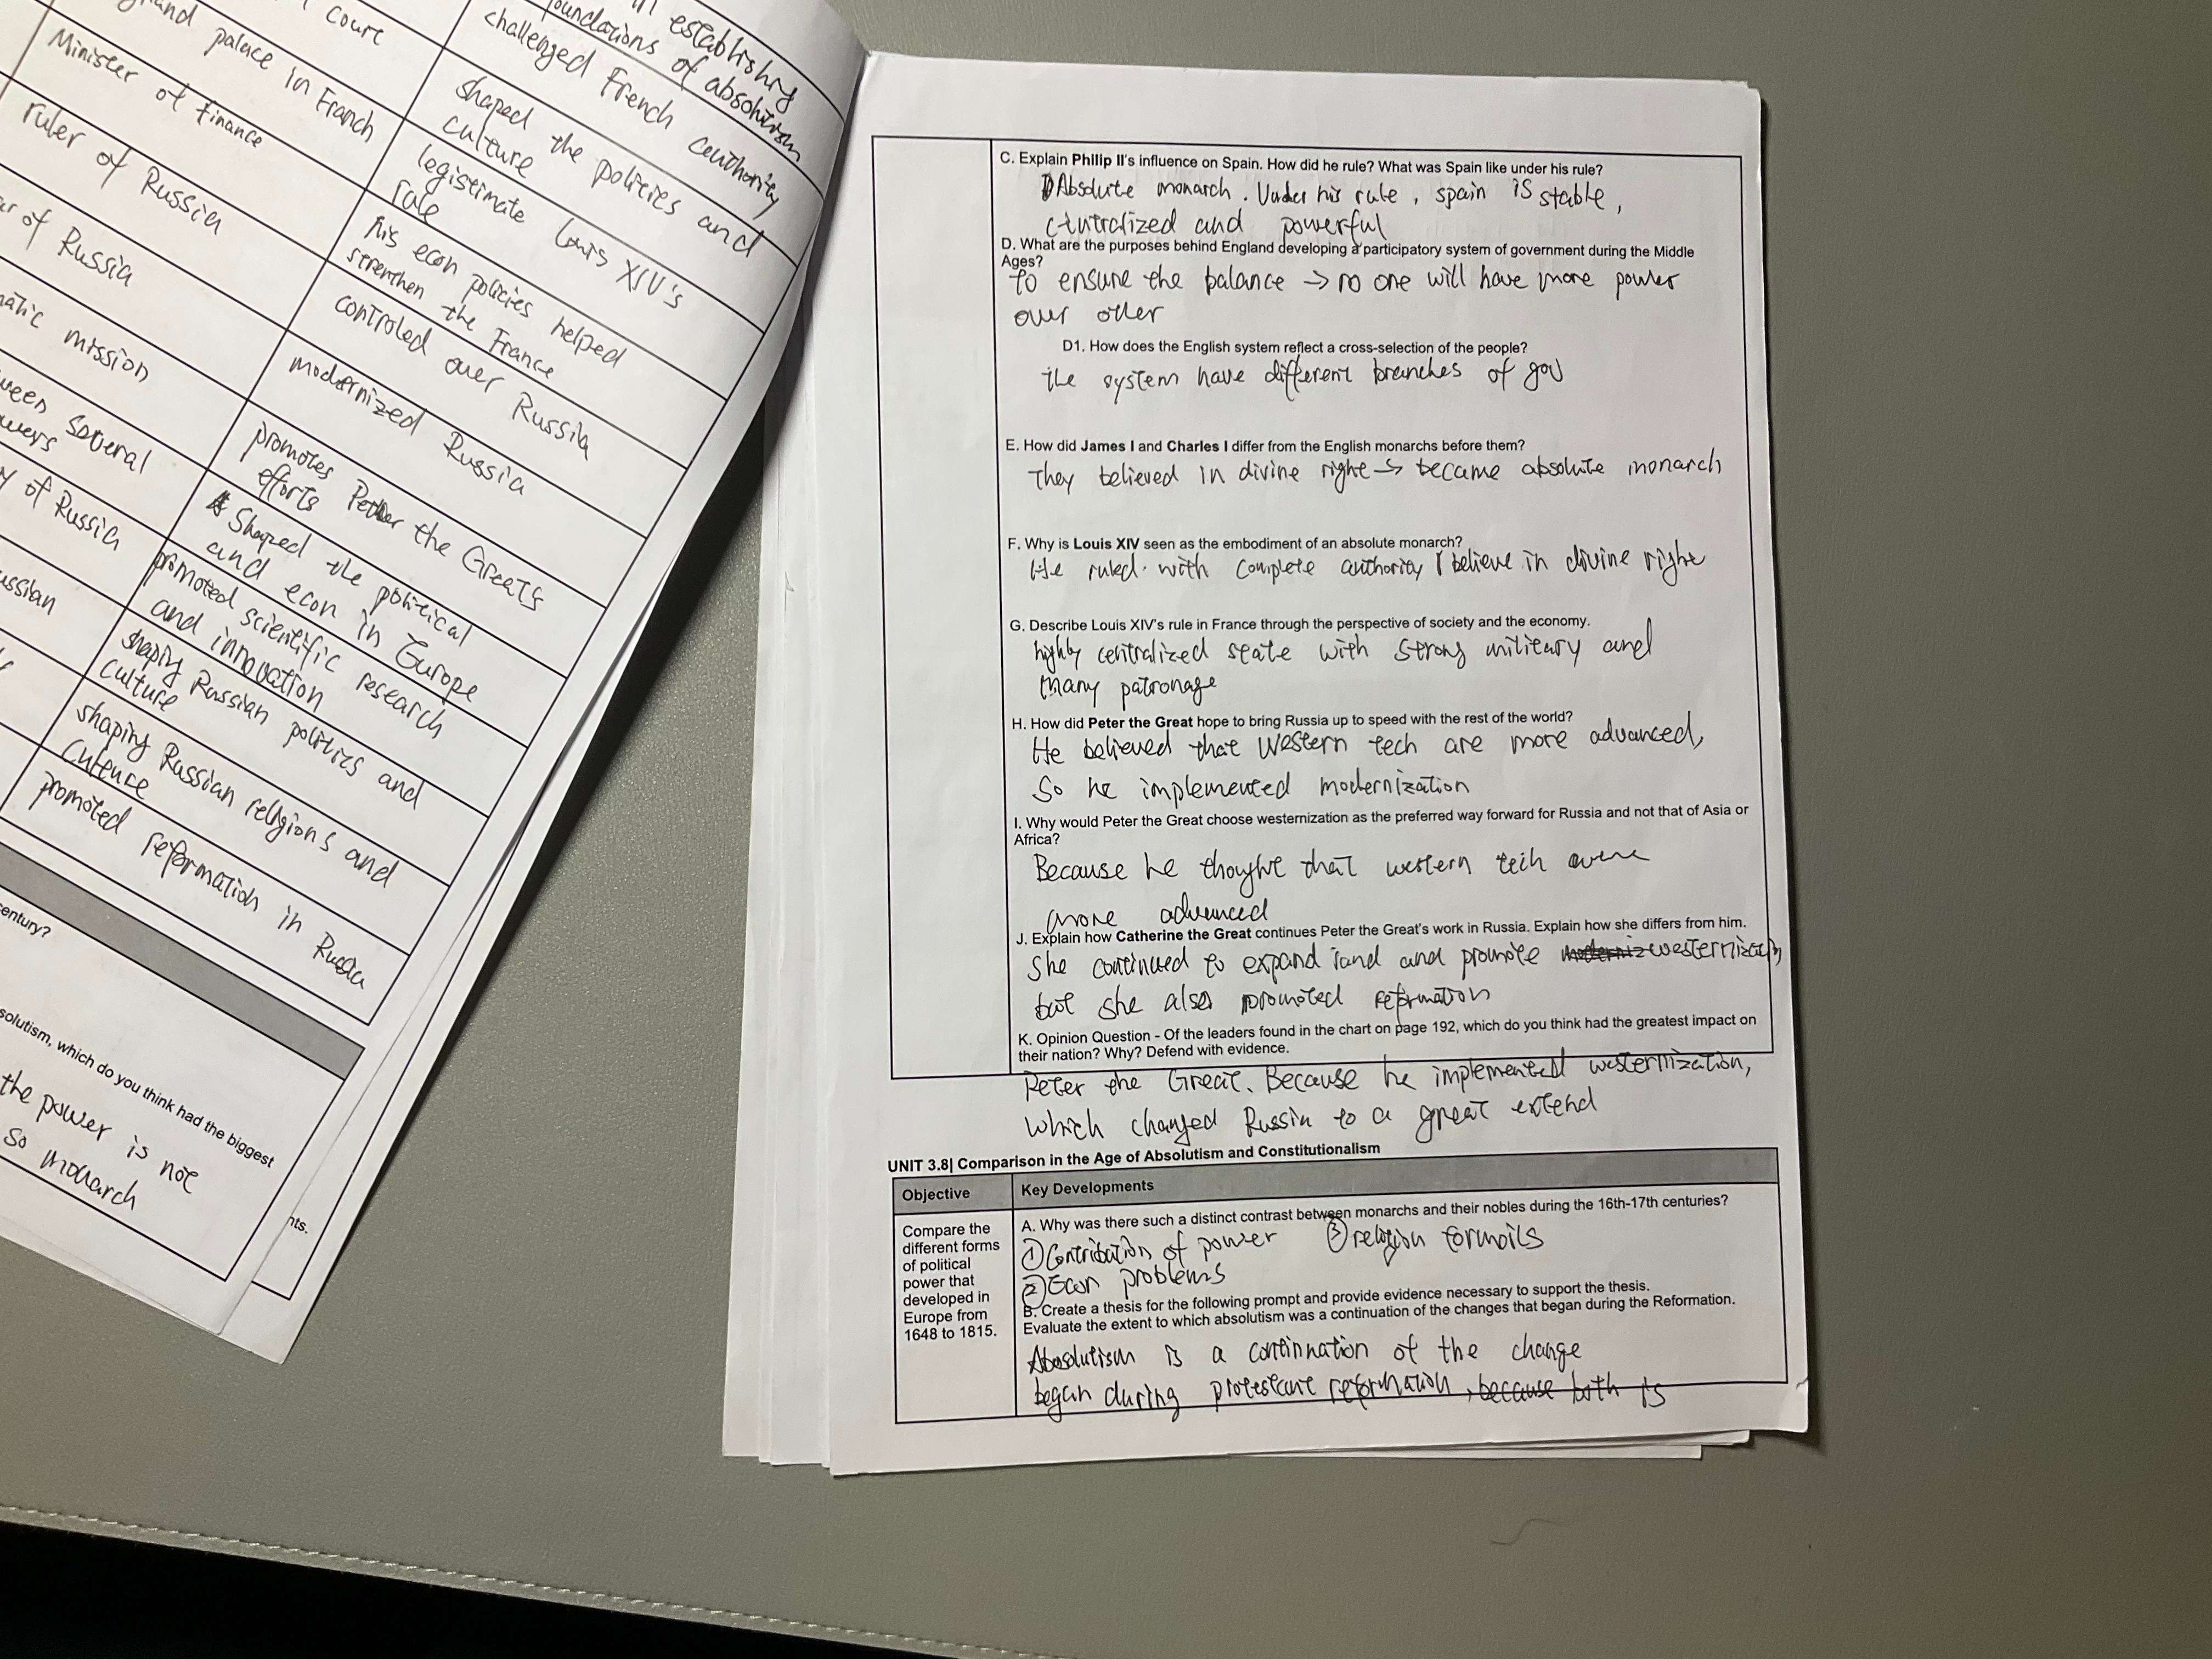 court
grand palace in Franch
Minister of Finance
ruler of Russia
of Russia
mission
several
of Russia
in establishing
foundations of absolutism
challenged French authority
shaped the policies and
culture
legistimate Louis XIV's
rule
his econ policies helped
strengthen the France
controled over Russia
modernized Russia
promotes Peter the Greats
efforts
Shaped the political
and econ in Europe
promoted scientific research
and innovation
shaping Russian politics and
culture
shaping Russian religions and
promoted reformation in Russia
century?
solutism, which do you think had the biggest
the power is not
so monarch
nts.
C. Explain Philip II's influence on Spain. How did he rule? What was Spain like under his rule?
Absolute monarch. Under his rule, spain is stable,
centralized and powerful
D. What are the purposes behind England developing a participatory system of government during the Middle
Ages?
to ensure the balance → no one will have more power
over other
D1. How does the English system reflect a cross-selection of the people?
the system have different branches of gov
E. How did James I and Charles I differ from the English monarchs before them?
They believed in divine right → became absolute monarch
F. Why is Louis XIV seen as the embodiment of an absolute monarch?
He ruled with complete authority / believe in divine right
G. Describe Louis XIV's rule in France through the perspective of society and the economy.
highly centralized state with strong military and
many patronage
H. How did Peter the Great hope to bring Russia up to speed with the rest of the world?
He believed that Western tech are more advanced,
so he implemented modernization
I. Why would Peter the Great choose westernization as the preferred way forward for Russia and not that of Asia or
Africa?
Because he thought that western tech were
more advanced
J. Explain how Catherine the Great continues Peter the Great's work in Russia. Explain how she differs from him.
She continued to expand land and promote moderniz westernization,
but she also promoted reformation
K. Opinion Question - Of the leaders found in the chart on page 192, which do you think had the greatest impact on
their nation? Why? Defend with evidence.
Peter the Great. Because he implemented westernization,
which changed Russia to a great extend
UNIT 3.8| Comparison in the Age of Absolutism and Constitutionalism
Objective
Key Developments
Compare the
different forms
of political
power that
developed in
Europe from
1648 to 1815.
A. Why was there such a distinct contrast between monarchs and their nobles during the 16th-17th centuries?
① Contribution of power ③ religion tormoils
② Econ problems
B. Create a thesis for the following prompt and provide evidence necessary to support the thesis.
Evaluate the extent to which absolutism was a continuation of the changes that began during the Reformation.
Absolutism is a continuation of the change
began during protestant reformation, because both is